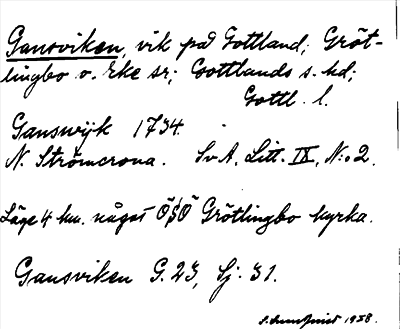 Gansviken, vik på Gottland; Gröt-
lingbo o. Eke sn; Gottlands s. hd;
Gottl. l.
Ganswijk 1734.
N. Strömcrona. SvA, Litt. IX, N:o 2.
Läge 4 km. något ÖSÖ Grötlingbo kyrka.
Gansviken G. 23, Sj. 31.
1938.